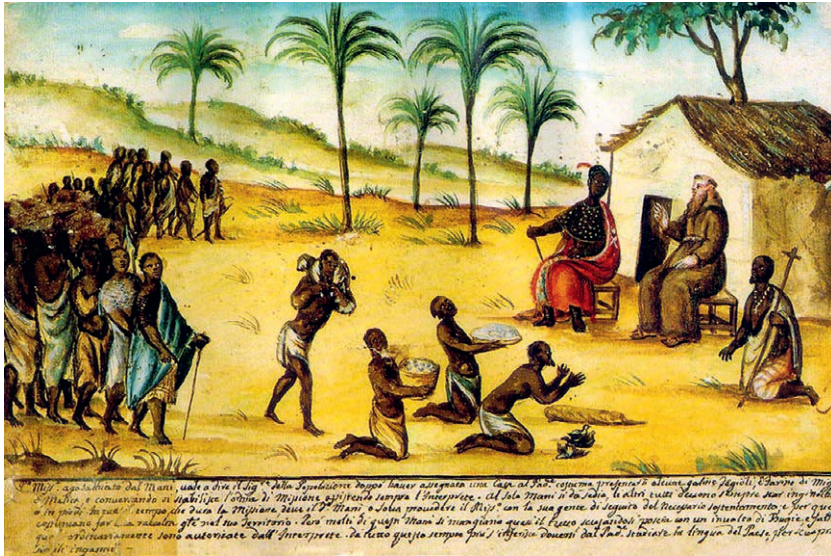 Miss.º agasaliato dal Mani, vale a dire il Sig.re della Popolazione doppo haver assegnata una Casa al Pad.e costuma presentarli alcune galine fagioli, e Farina di
e Malica, e convenendo si stabilisce l'ora di Missione assistendo sempre l'Interprete. Al solo Mani si da sedia, li altri tutti devono sempre star
o in piedi. In tutto il tempo, che dura la Missione deve il d.º Mani o Sova provedere il Miss.º con la sua gente di seguito del necessario sostentamento, e per
costumano far La racolta nel suo Territorio. Però molti di questi Mani si mangiano quasi il tutto scusandosi poscia con un involto di Bugie
ordinariamente sono autorizate dall'Interprete. da tutto questo sempre più s'inferisce doversi dal Pad. studiare la lingua del Paese per
li inganni